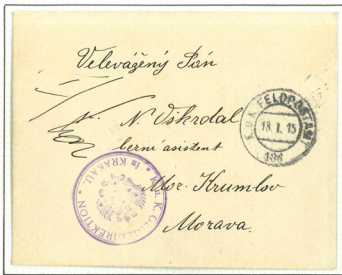 Velevážený Pán
N. Vškrdal
berní asistent
Mor. Krumlov
Morava.
K.U.K. FELDPOSTAMT
18. I. 15
186
DIREKTION
in KRAKAU.